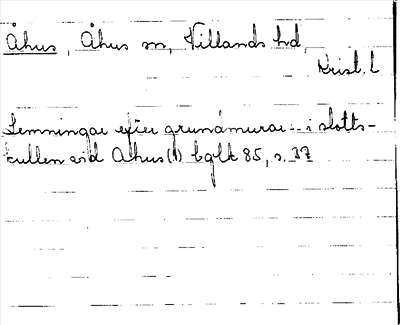 Åhus, Åhus sn, Villands hd,
Krist. l
Lemningar efter grundmurar i slotts-
kullen vid Åhus (1) bglt 85, s. 37